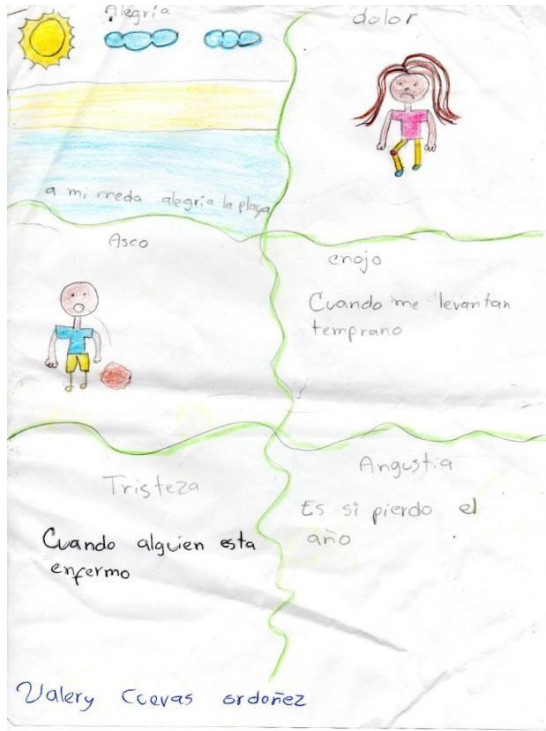 Alegría
a mi meda alegría la playa
dolor
Asco
enojo
Cuando me levantan
temprano
Tristeza
Cuando alguien esta
enfermo
Angustia
Es si pierdo el
año
Valery Cuevas ordoñez